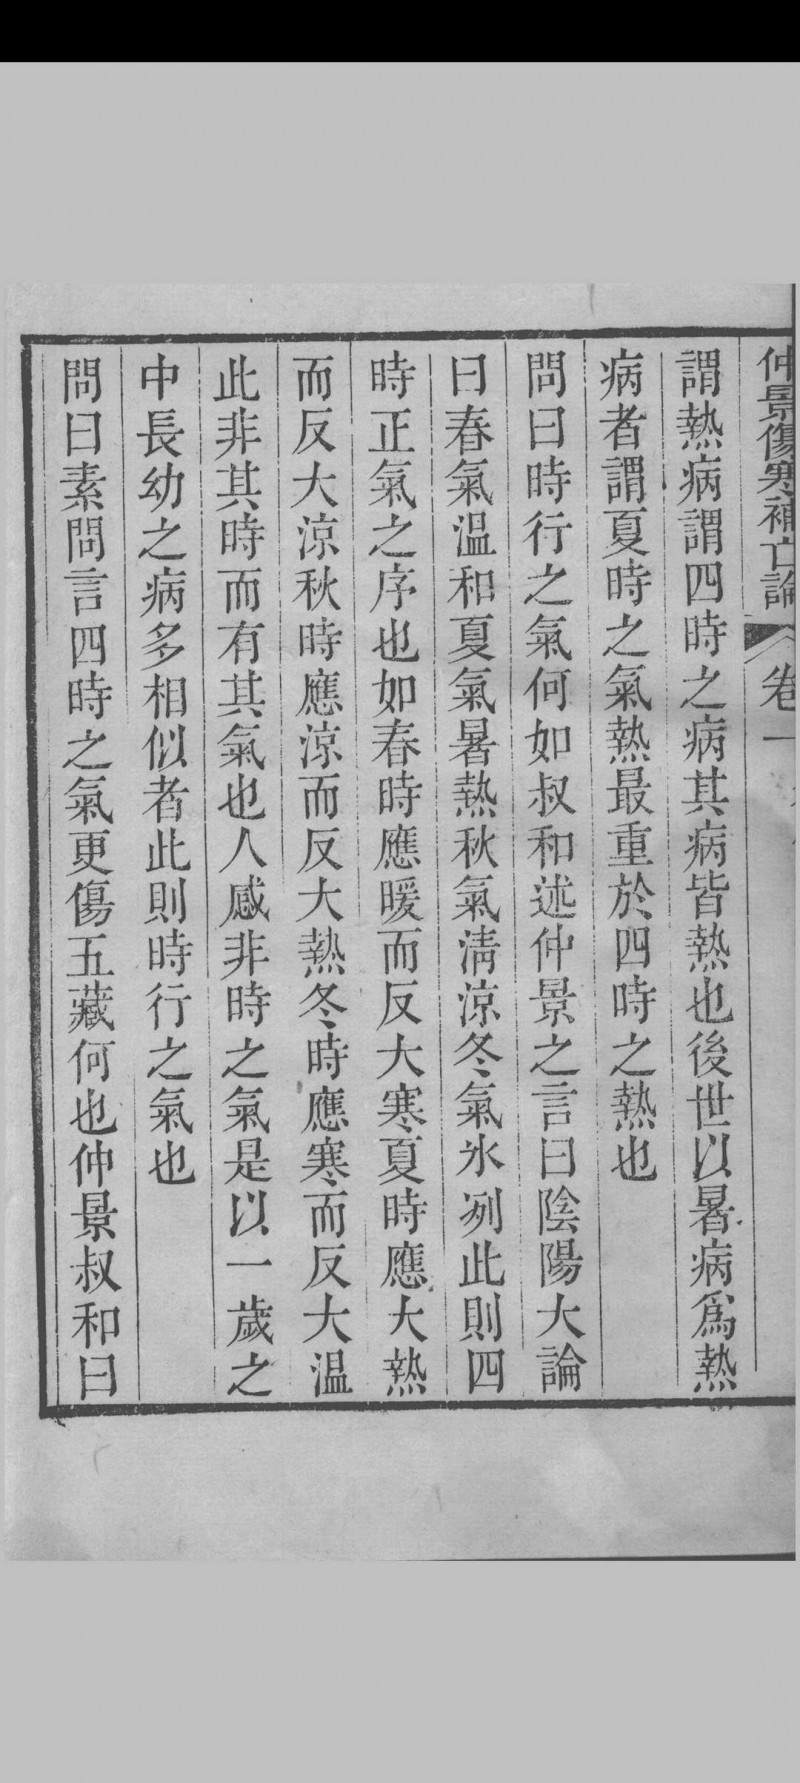 仲景傷寒補亡論 卷一
謂熱病謂四時之病其病皆熱也後世以暑病爲熱
病者謂夏時之氣熱最重於四時之熱也
問曰時行之氣何如叔和述仲景之言曰陰陽大論
曰春氣溫和夏氣暑熱秋氣淸涼冬氣氷冽此則四
時正氣之序也如春時應暖而反大寒夏時應大熱
而反大涼秋時應涼而反大熱冬時應寒而反大温
此非其時而有其氣也人感非時之氣是以一歲之
中長幼之病多相似者此則時行之氣也
問曰素問言四時之氣更傷五藏何也仲景叔和曰